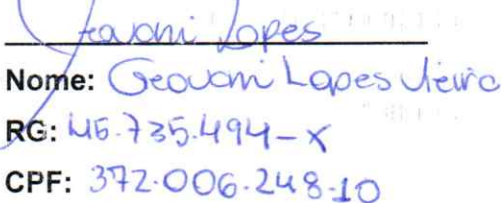 Geovani Lopes
Nome: Geovani Lopes Vieira
RG: 45.735.494-X
CPF: 372.006.248-10